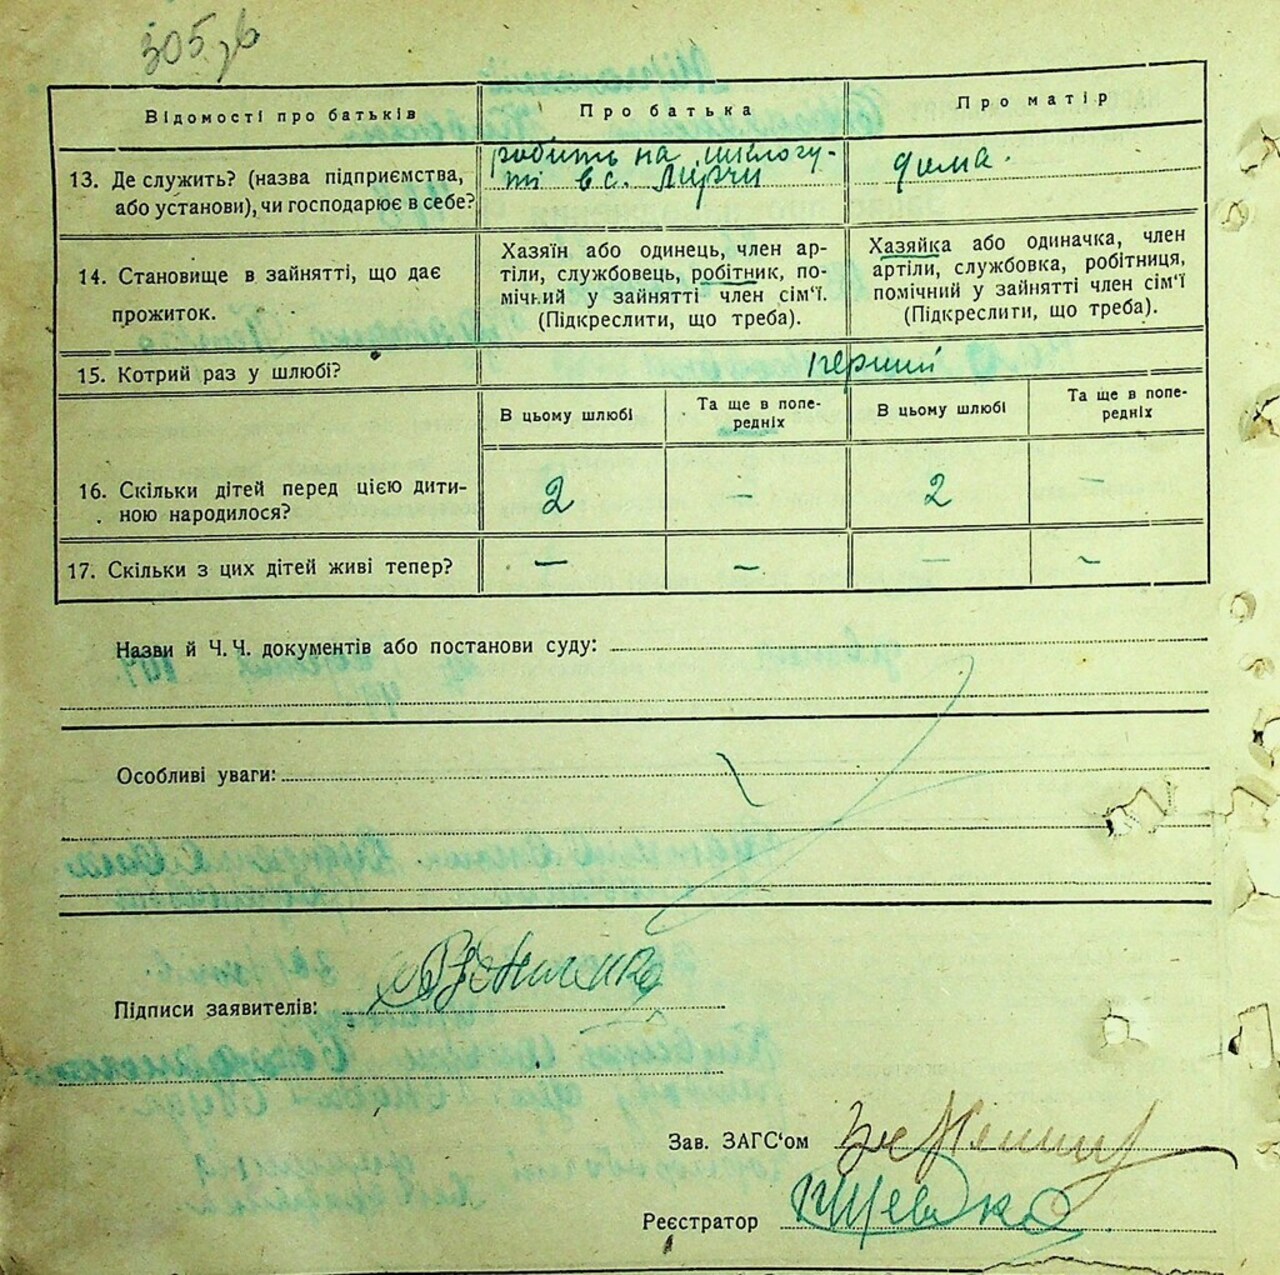 305 зв
Відомості про батьків
Про батька
Про матір
13. Де служить? (назва підприємства,
або установи), чи господарює в себе?
робить на
ті в с.
дома.
14. Становище в зайнятті, що дає
прожиток.
Хазяїн або одинець, член ар-
тіли, службовець, робітник, по-
мічний у зайнятті член сім'ї.
(Підкреслити, що треба).
Хазяйка або одиначка, член
артіли, службовка, робітниця,
помічний у зайнятті член сім'ї
(Підкреслити, що треба).
15. Котрий раз у шлюбі?
перший
В цьому шлюбі
Та ще в попе-
редніх
В цьому шлюбі
Та ще в попе-
редніх
16. Скільки дітей перед цією дити-
ною народилося?
2 — 2 —
17. Скільки з цих дітей живі тепер?
— — — —
Назви й Ч. Ч. документів або постанови суду:
Особливі уваги:
Підписи заявителів:
Зав. ЗАГС'ом
Реєстратор